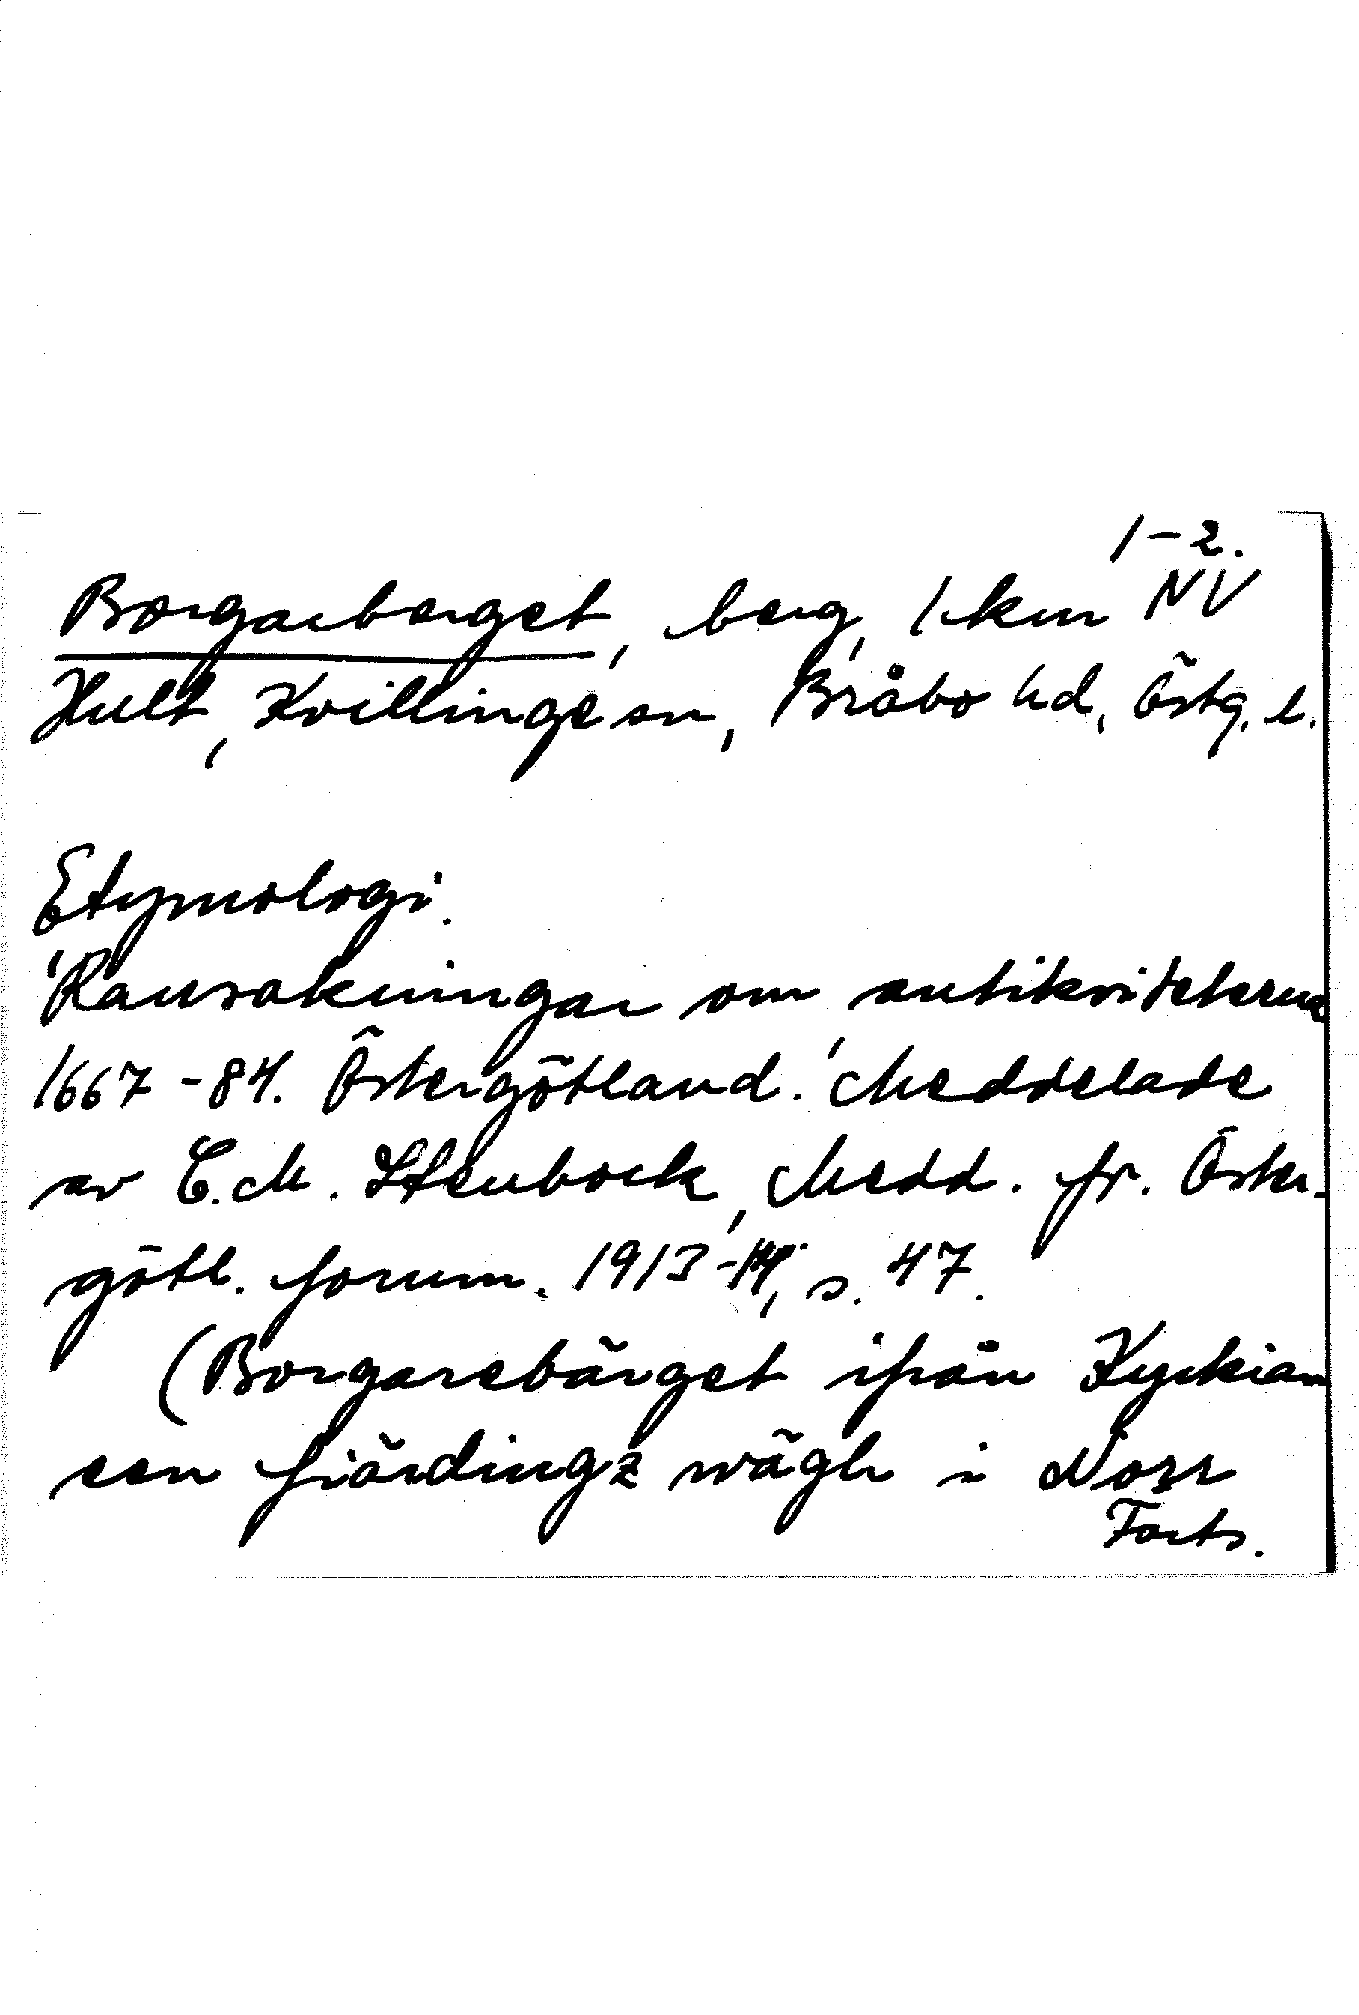 1-2.
Borgarberget, berg, 1 km NV
Hult, Kvillinge sn, Bråbo hd, Östg. l.
Etymologi.
'Ransakningar om antikviteterna
1667-84. Östergötland.' Meddelade
av C.M. Stenbock, Medd. fr. Öster-
götl. fornm. 1913-14, s. 47.
(Borgarebärget ifrån Kyrkian
een fiärdingz wägh i Norr
Forts.